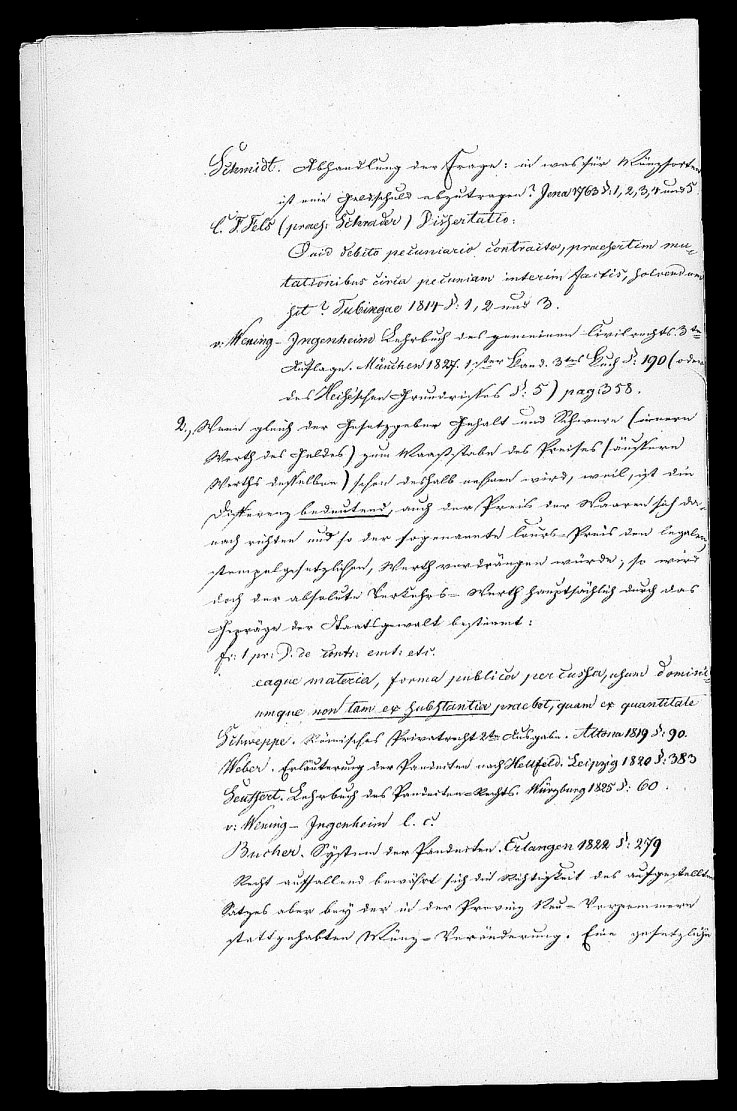 Schmidt. Abhandlung der Frage: in was für Münzsorten
ist eine Geldschuld abzutragen? Jena 1763 §: 1, 2, 3, 4 und 5.
C. F. Fels (praes: Schrader) Dissertatio:
Quid debito pecuniario contracto, praesertim mu-
tationibus circa pecuniam interim factis, solvendum
sit? Tubingae 1814 §: 1, 2 und 3.
v: Wening-Ingenheim Lehrbuch des gemeinen Civilrechts. 3te
Auflage. München 1827. 1ster Band. 3tes Buch §: 190 (oder
des Heiseschen Grundrisses §: 5) pag: 358.
2., Wenn gleich der Gesetzgeber Gehalt und Schwere (innern
Werth des Geldes) zum Maaßstabe des Preises (äussern
Werths desselben) schon deshalb nehmen wird, weil, ist die
Differenz bedeutend, auch der Preis der Waaren sich da-
nach richten und so der sogenannte Cours-Preis den legalen,
stempelgesetzlichen, Werth verdrängen würde, so wird
doch der absolute Verkehrs-Werth hauptsächlich durch das
Gepräge der Staatsgewalt bestimmt:
fr: 1 pr: D: de contr: emt: etc.
eaque materia, forma publica percussa, usum domini-
umque non tam ex substantia praebet, quam ex quantitate
Schweppe. Römisches Privatrecht 2te Ausgabe. Altona 1819 §: 90
Weber. Erläuterung der Pandecten nach Hellfeld. Leipzig 1820 §: 383
Seuffert. Lehrbuch des Pandecten-Rechts. Würzburg 1825 §: 60.
v: Wening-Ingenheim l. c.
Bucher. System der Pandecten. Erlangen 1822 §: 279
Recht auffallend bewährt sich die Richtigkeit des aufgestellten
Satzes aber bey der in der Provinz Neu-Vorpommern
stattgehabten Münz-Veränderung. Eine gesetzliche